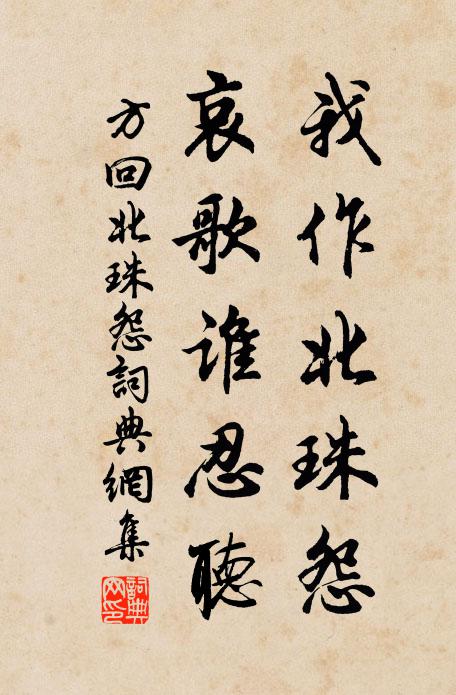 我作北珠怨
哀歌谁忍聽
方回北珠怨詞典網集
詞典网印